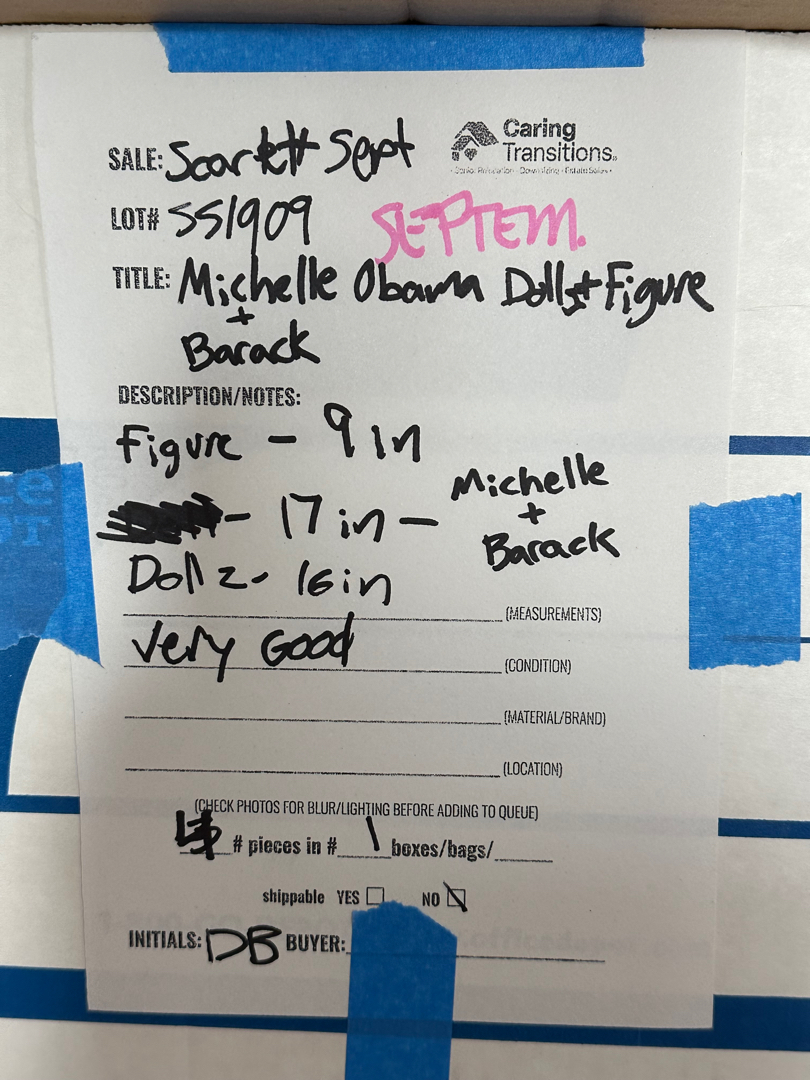 SALE: Scarlett Sept
Caring
Transitions
LOT# SS1909
SEPTEM.
TITLE: Michelle Obama Dolls + Figure
+
Barack
DESCRIPTION/NOTES:
Figure - 9 in
- 17 in - Michelle
+
Barack
Doll 2 - 16 in
(MEASUREMENTS)
Very Good (CONDITION)
(MATERIAL/BRAND)
(LOCATION)
(CHECK PHOTOS FOR BLUR/LIGHTING BEFORE ADDING TO QUEUE)
# pieces in # 1 boxes/bags/
shippable YES NO
INITIALS: DB BUYER: